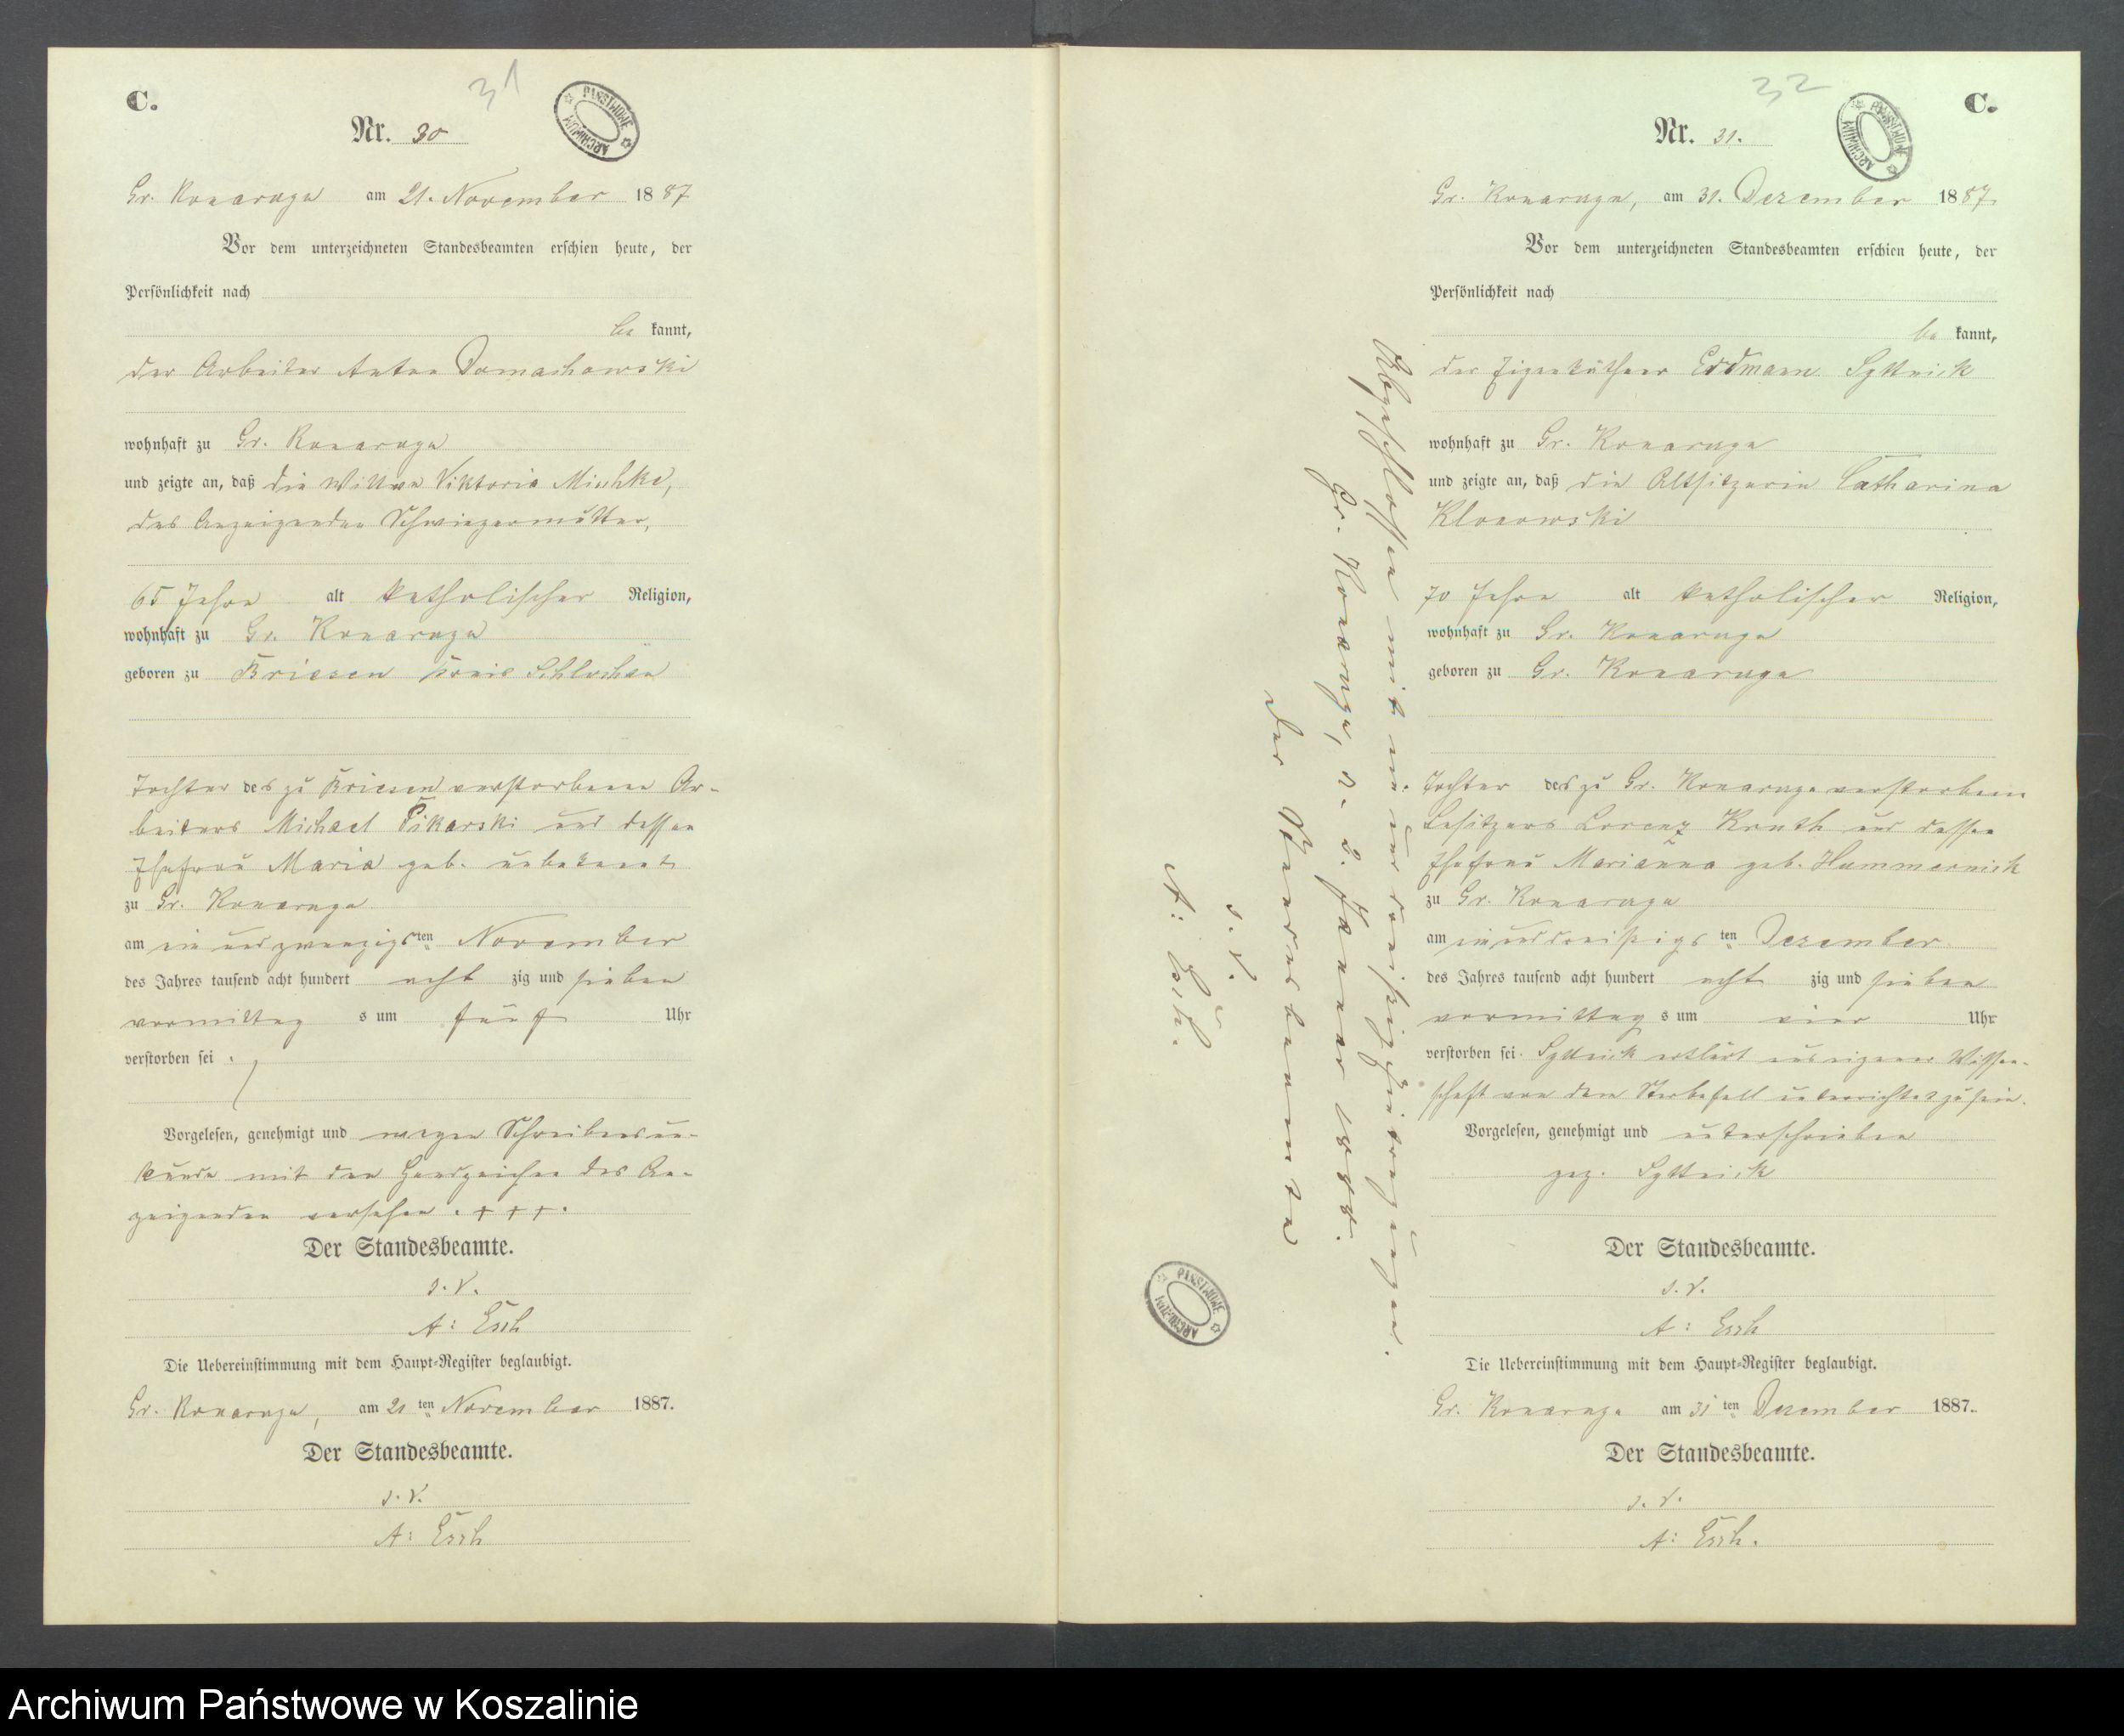 31
C.
Nr. 30
ARCHIWUM PAŃSTWOWE
Gr. Konarzyn am 21. November 1887
Vor dem unterzeichneten Standesbeamten erschien heute, der
Persönlichkeit nach
be kannt,
der Arbeiter Anton Domachowski
wohnhaft zu Gr. Konarzyn
und zeigte an, daß die Wittwe Viktoria Mischke,
des Anzeigenden Schwiegermutter,
65 Jahre alt katholischer Religion,
wohnhaft zu Gr. Konarzyn
geboren zu Briesen Kreis Schlochau
Tochter des zu Briesen verstorbenen Ar-
beiters Michael Pikarski und dessen
Ehefrau Maria geb. unbekannt
zu Gr. Konarzyn
am ein und zwanzigsten November
des Jahres tausend acht hundert acht zig und sieben
vormittag s um fünf Uhr
verstorben sei.
Vorgelesen, genehmigt und wegen Schreibensun-
kunde mit den Handzeichen des An-
zeigenden versehen. +++.
Der Standesbeamte.
s. V.
A: Esch
Die Uebereinstimmung mit dem Haupt-Register beglaubigt.
Gr. Konarzyn, am 21 ten November 1887.
Der Standesbeamte.
s. V.
A: Esch
32
C.
Nr. 31.
ARCHIWUM PAŃSTWOWE
Gr. Konarzyn, am 31. Dezember 1887.
Vor dem unterzeichneten Standesbeamten erschien heute, der
Persönlichkeit nach
be kannt,
der Eigenkäthner Erdmann Syttnick
wohnhaft zu Gr. Konarzyn
und zeigte an, daß die Altsitzerin Catharina
Klonowski
70 Jahre alt katholischer Religion,
wohnhaft zu Gr. Konarzyn
geboren zu Gr. Konarzyn
Tochter des zu Gr. Konarzyn verstorbenen
Besitzers Lorenz Knuth und dessen
Ehefrau Marianna geb. Hammernick
zu Gr. Konarzyn
am ein und dreißigs ten Dezember
des Jahres tausend acht hundert acht zig und sieben
vormittag s um vier Uhr
verstorben sei. Syttnick erklärt aus eigener Wissen-
schaft von dem Sterbefall unterrichtet zu sein.
Vorgelesen, genehmigt und unterschrieben
gez. Syttnick
Der Standesbeamte.
s. V.
A: Esch
Die Uebereinstimmung mit dem Haupt-Register beglaubigt.
Gr. Konarzyn am 31 ten Dezember 1887.
Der Standesbeamte.
s. V.
A: Esch.
Abgeschlossen mit einunddreißig Eintragungen.
Gr. Konarzyn, d. 2. Januar 1888.
Der Standesbeamte
s. V.
A: Esch.
ARCHIWUM PAŃSTWOWE
Archiwum Państwowe w Koszalinie